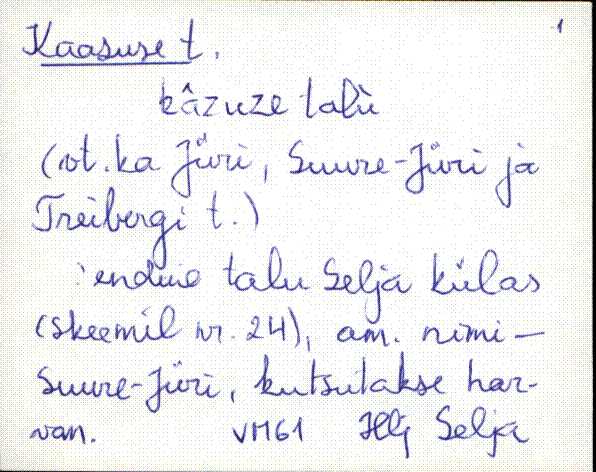 1
Kaasuse t.
kâzuze talù
(vt. ka Jüri, Suure-Jüri ja
Treibergi t.)
endine talu Selja külas
(skeemil nr. 24), am. nimi –
Suure-Jüri, kutsutakse har-
van. VM61 Hlj Selja